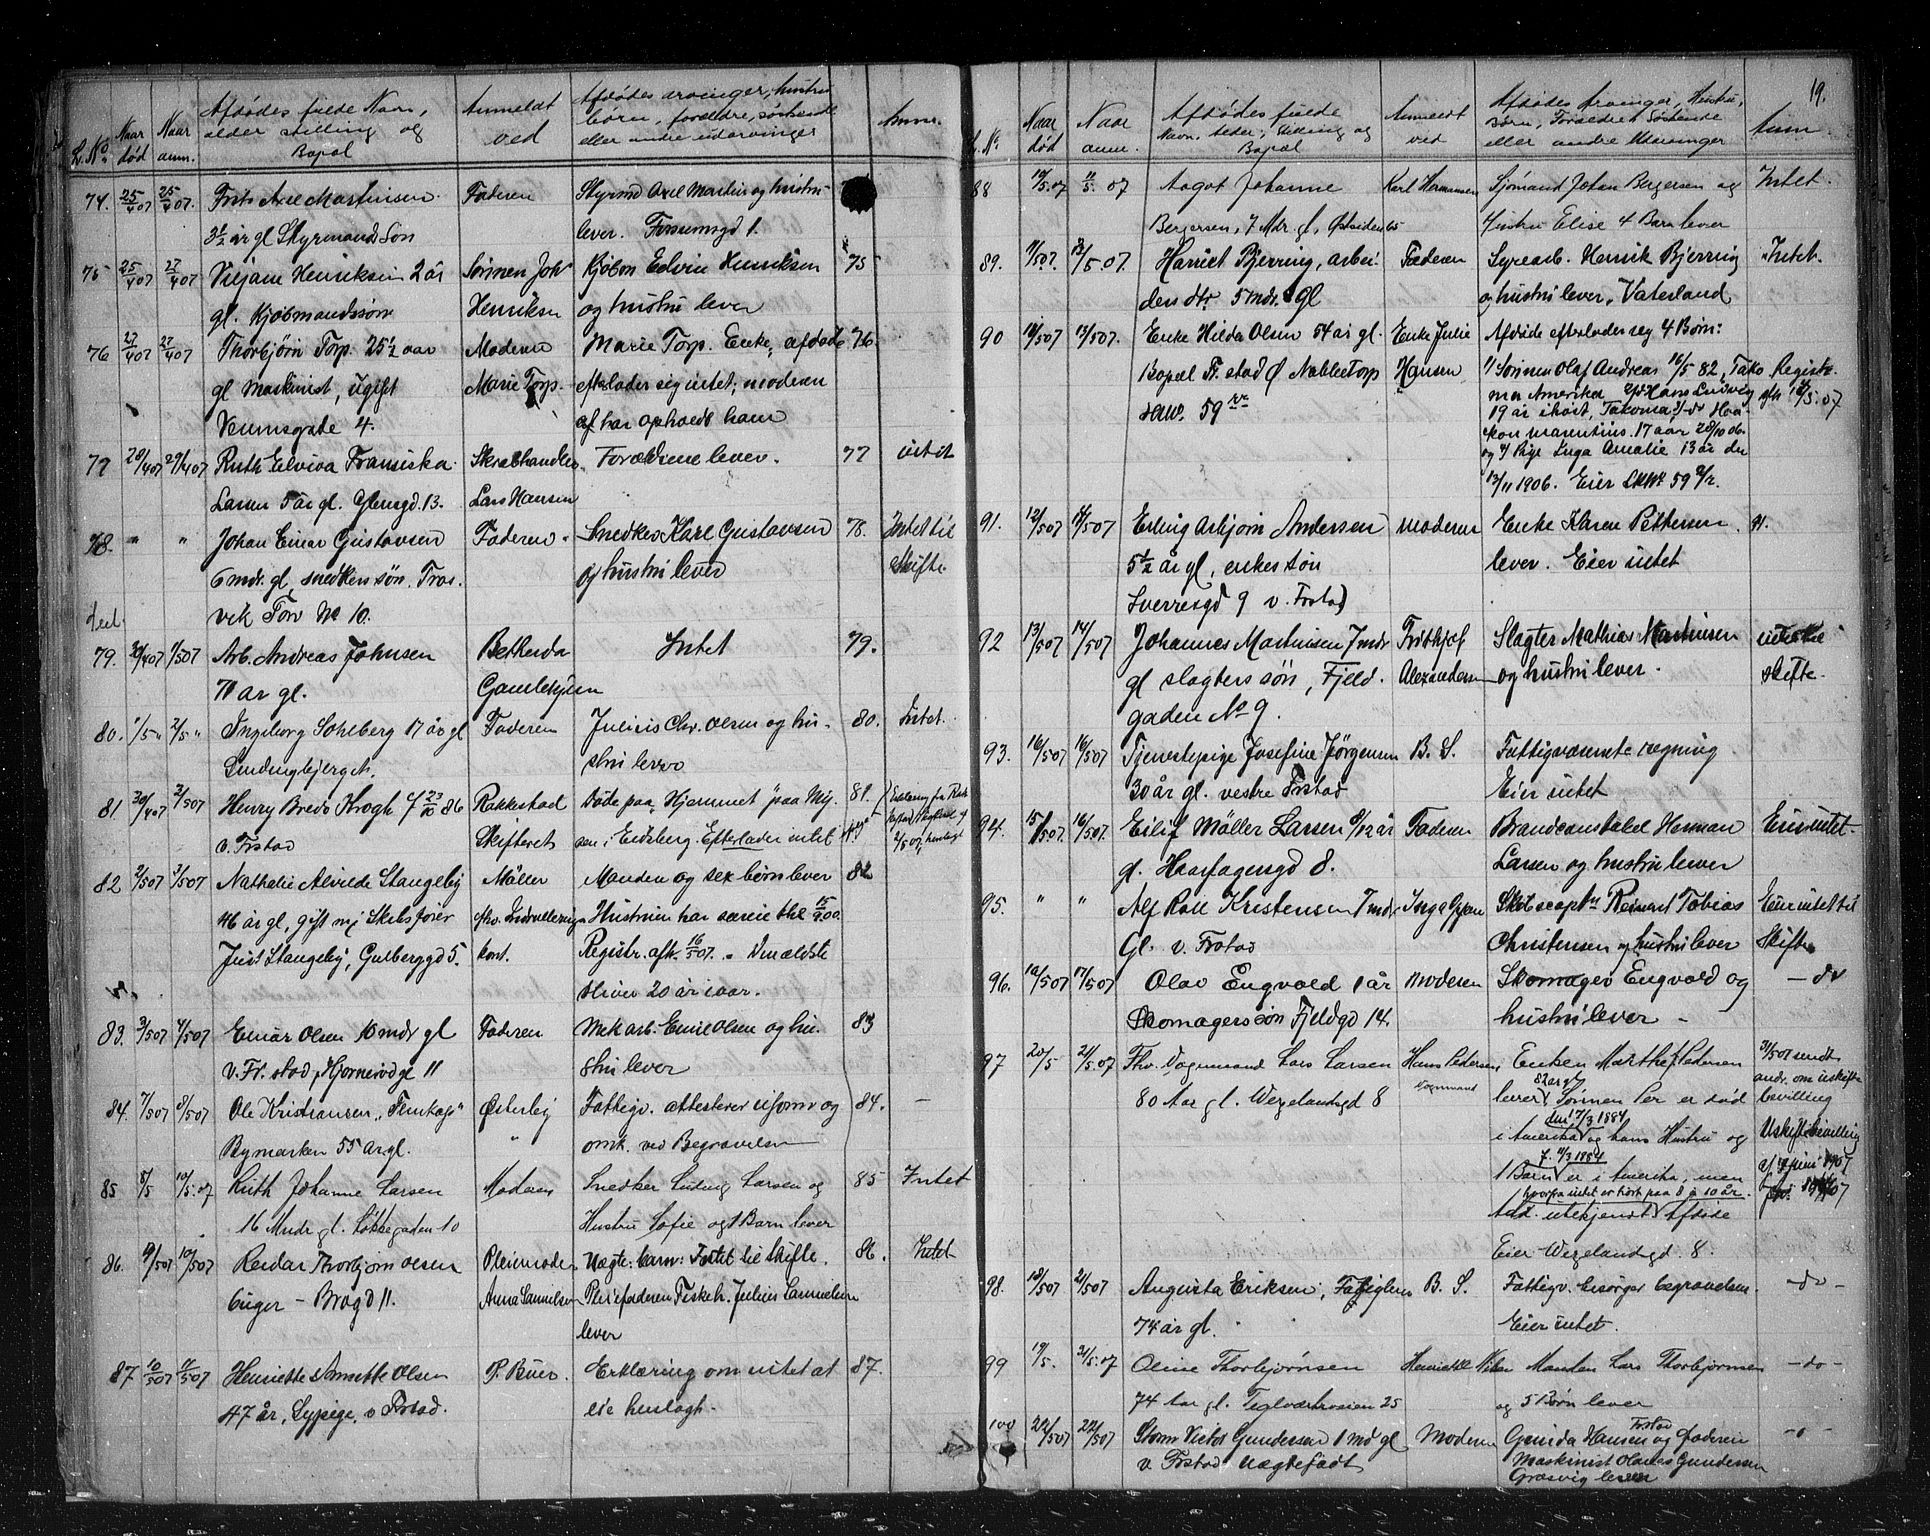 19.
L. No. Naar død Naar anm. Afdødes fulde Navn, alder stilling og Bopæl Anmeldt ved Afdødes arvinger, hustru børn, forældre, søskende eller andre udarvinger Anm.
74. 25/4 07 25/4 07. Frits Axel Martinsen Faderen Styrmd Axel Martins og hustru
3½ år gl Styrmands Søn lever. Forsumsgd 1.
75 25/4 07 27/4 07 Henriksen 2 år Joh Kjøbm Edvin Henriksen 75
gl. Kjøbmandssøn Henriksen og hustru lever
76 27/4 07 27/4 07 Thorbjørn Torp. 25½ aar Moderen Marie Torp. Enke, afdøde 76.
gl maskinist, ugift Marie Torp. efterlader sig intet; moderen
Venusgate 4. af har opholdt ham
77 28/4 07 29/4 07 Ruth Elvira Fransiska Skrabhandler Forældrene lever. 77 intet
Larsen 5 år gl. Glemsgd. 13. Lars Hansen
78. " " Johan Einar Gustavsen Faderen Snedker Karl Gustavsen 78. Intet til
6 mdr. gl, snedkers søn. Tros- og hustru lever Skifte
vik Torv No 10.
79. 30/4 07 1/5 07 Arb. Andreas Johnsen Betherda Intet 79.
71 år gl. Gamlehjem
80. 1/5 " 2/5 " Ingeborg Sohlberg 17 år gl Faderen Julius Chr. Olsen og hu- 80. Intet
stru lever
81. 30/4 07 2/5 07 Henry Bredo Krogh f 23/10 86 Rakkestad Døde paa Hjemmet paa My- 81.
v. Frstad Skifteret sen i Eidsberg. Efterlader intet
82 2/5 07 3/5 07 Nathalie Alvilde Stangeby Møller Manden og sex børn lever 82
46 år gl, gift m/ Skibsfører Hustruen har særeie thl. 15/9 00.
Just Stangeby, Gulbergsgd 5. kont. Registr. afh. 16/5 07. Den ældste
bliver 20 år i aar.
83. 3/5 07 4/5 07 Einar Olsen 10 mdr gl Faderen Mek arb. Emil Olsen og hu- 83
v. Fr.stad, 11 stru lever
84. 7/5 07 8/5 07 Ole Kristiansen, Østerby Fattigv. attesterer og 84. —
Bymarken 55 år gl. " omk. ved Begravelsen
85 8/5 10/5 07 Ruth Johanne Larsen Madam Snedker Ludvig Larsen og 85 Intet
16 Mndr gl. Løkkegaden 10 Hustru Sofie og 1 Barn lever
86. 9/5 07 10/5 07 Reidar Thorbjørn Olsen Pleiemoder Uægte barn: Intet til skifte. 86. Intet
6 uger – Brogd 11. Anna Samuelsen Pleiefaderen Fiskeh. Julius Samuelsen
lever
87 10/5 07 11/5 07 Henriette Annette Olsen P. Buer. Erklæring om intet at 87.
47 år, Sypige. v Frstad. eie henlagt.
L. No. Naar død Naar anm. Afdødes fulde Navn, Alder, Stilling og Bopæl Anmeldt ved Afdødes Arvinger, Hustru, Børn, Forældre, Søskende eller andre Udarvinger Anm
88 10/5 07 11/5 07 Aagot Johanne Karl Hermansen Sjømand Johan Bergersen og Intet.
Bergersen, 7 Mdr. gl, Østsiden 65 Hustru Elise 4 Barn lever
89. 11/5 07. 13/5 07. Harriet Bjerring, arbei- Faderen Syrearb. Henrik Bjerring Intet.
ders dtr. 5 mdr. gl og hustru lever, Vaterland
90 10/5 07 13/5 07. Enke Hilda Olsen 54 år gl. Enke Julie Afdøde efterlader sig 4 Børn:
Bopæl Fr.stad Ø Nabbetorp Hansen 1/ Sønnen Olaf Andreas 16/5 82, Tako Registr.
59 ma Amerika 2/ Hans Ludvig
19 år i høst, Takoma 3/ Haa-
kon Marentius. 17 aar 28/10 06.
og 4/ Pige Inga Amalie 13 år den
13/11 1906. Eier
91. 12/5 07 14/5 07 Erling Asbjørn Andersen Moderen Enke Karen Pettersen 91.
5½ år gl, enkes søn lever. Eier intet
Sverresgd 9 v. Frstad
92 13/5 07 14/5 07 Johannes Martinsen 7 mdr Fridthjof Slagter Mathias Martinsen intet til
gl slagters søn, Fjeld- Alexandersen og hustru lever. skifte.
gaden No 9.
93. 16/5 07 16/5 07 Tjenestepige Josefine Jørgensen B. S. Fattigvæsenets regning
30 år gl. vestre Frstad Eier intet
94. 15/5 07. 16/5 07. Eilif Møller Larsen 9/12 år Faderen Brandconstabel Herman Eier intet.
gl. Haarfagersgd 8. Larsen og hustru lever
95. " " Alf Rolf Kristensen 7 mdr Inga Skibscaptn Reinert Tobias Eier intet til
Gl. v. Frstad Christensen og hustru lever Skifte
96. 16/5 07 17/5 07 Olav Engvold 1 år Moderen Skomager Engvold og — do
Skomagers søn Fjeldgd 14. hustru lever –
97 20/5 21/5 07 Fhv. Vognmand Lars Larsen Hans Pedersen, Enken Marthe Pedersen 31/5 07 sendt
80 Aar gl. Wegelandsgd 8 Vognmand 82 år gl andr. om uskifte
lever, Sønnen Per er død bevilling
den 17/3 1884
i Amerika og hans Hustru og Uskiftebevilling
1 Barn er i Amerika, men
hvorfra intet er hørt paa 8 á 10 år.
ubekjendt Afdøde
Eier Wegelandsgd 8.
98. 18/5 07 21/5 07 Augusta Eriksen, Fattiglem B. S. Fattigv. besørger begravelsen — do —
74 år gl. Eier intet.
99 19/5. 21/5 07 Oline Thorbjørnsen Henriette Manden Lars Thorbjørnsen — do —
74 Aar gl. 25 og 5 Børn lever
100 22/5 07 22/5 07 Storm Victor Gundersen 1 md gl Moderen Gunda Hansen Frstad og Faderen — " —
v. Frstad Uægtefødt Maskinist Gundersen
Græsvig lever